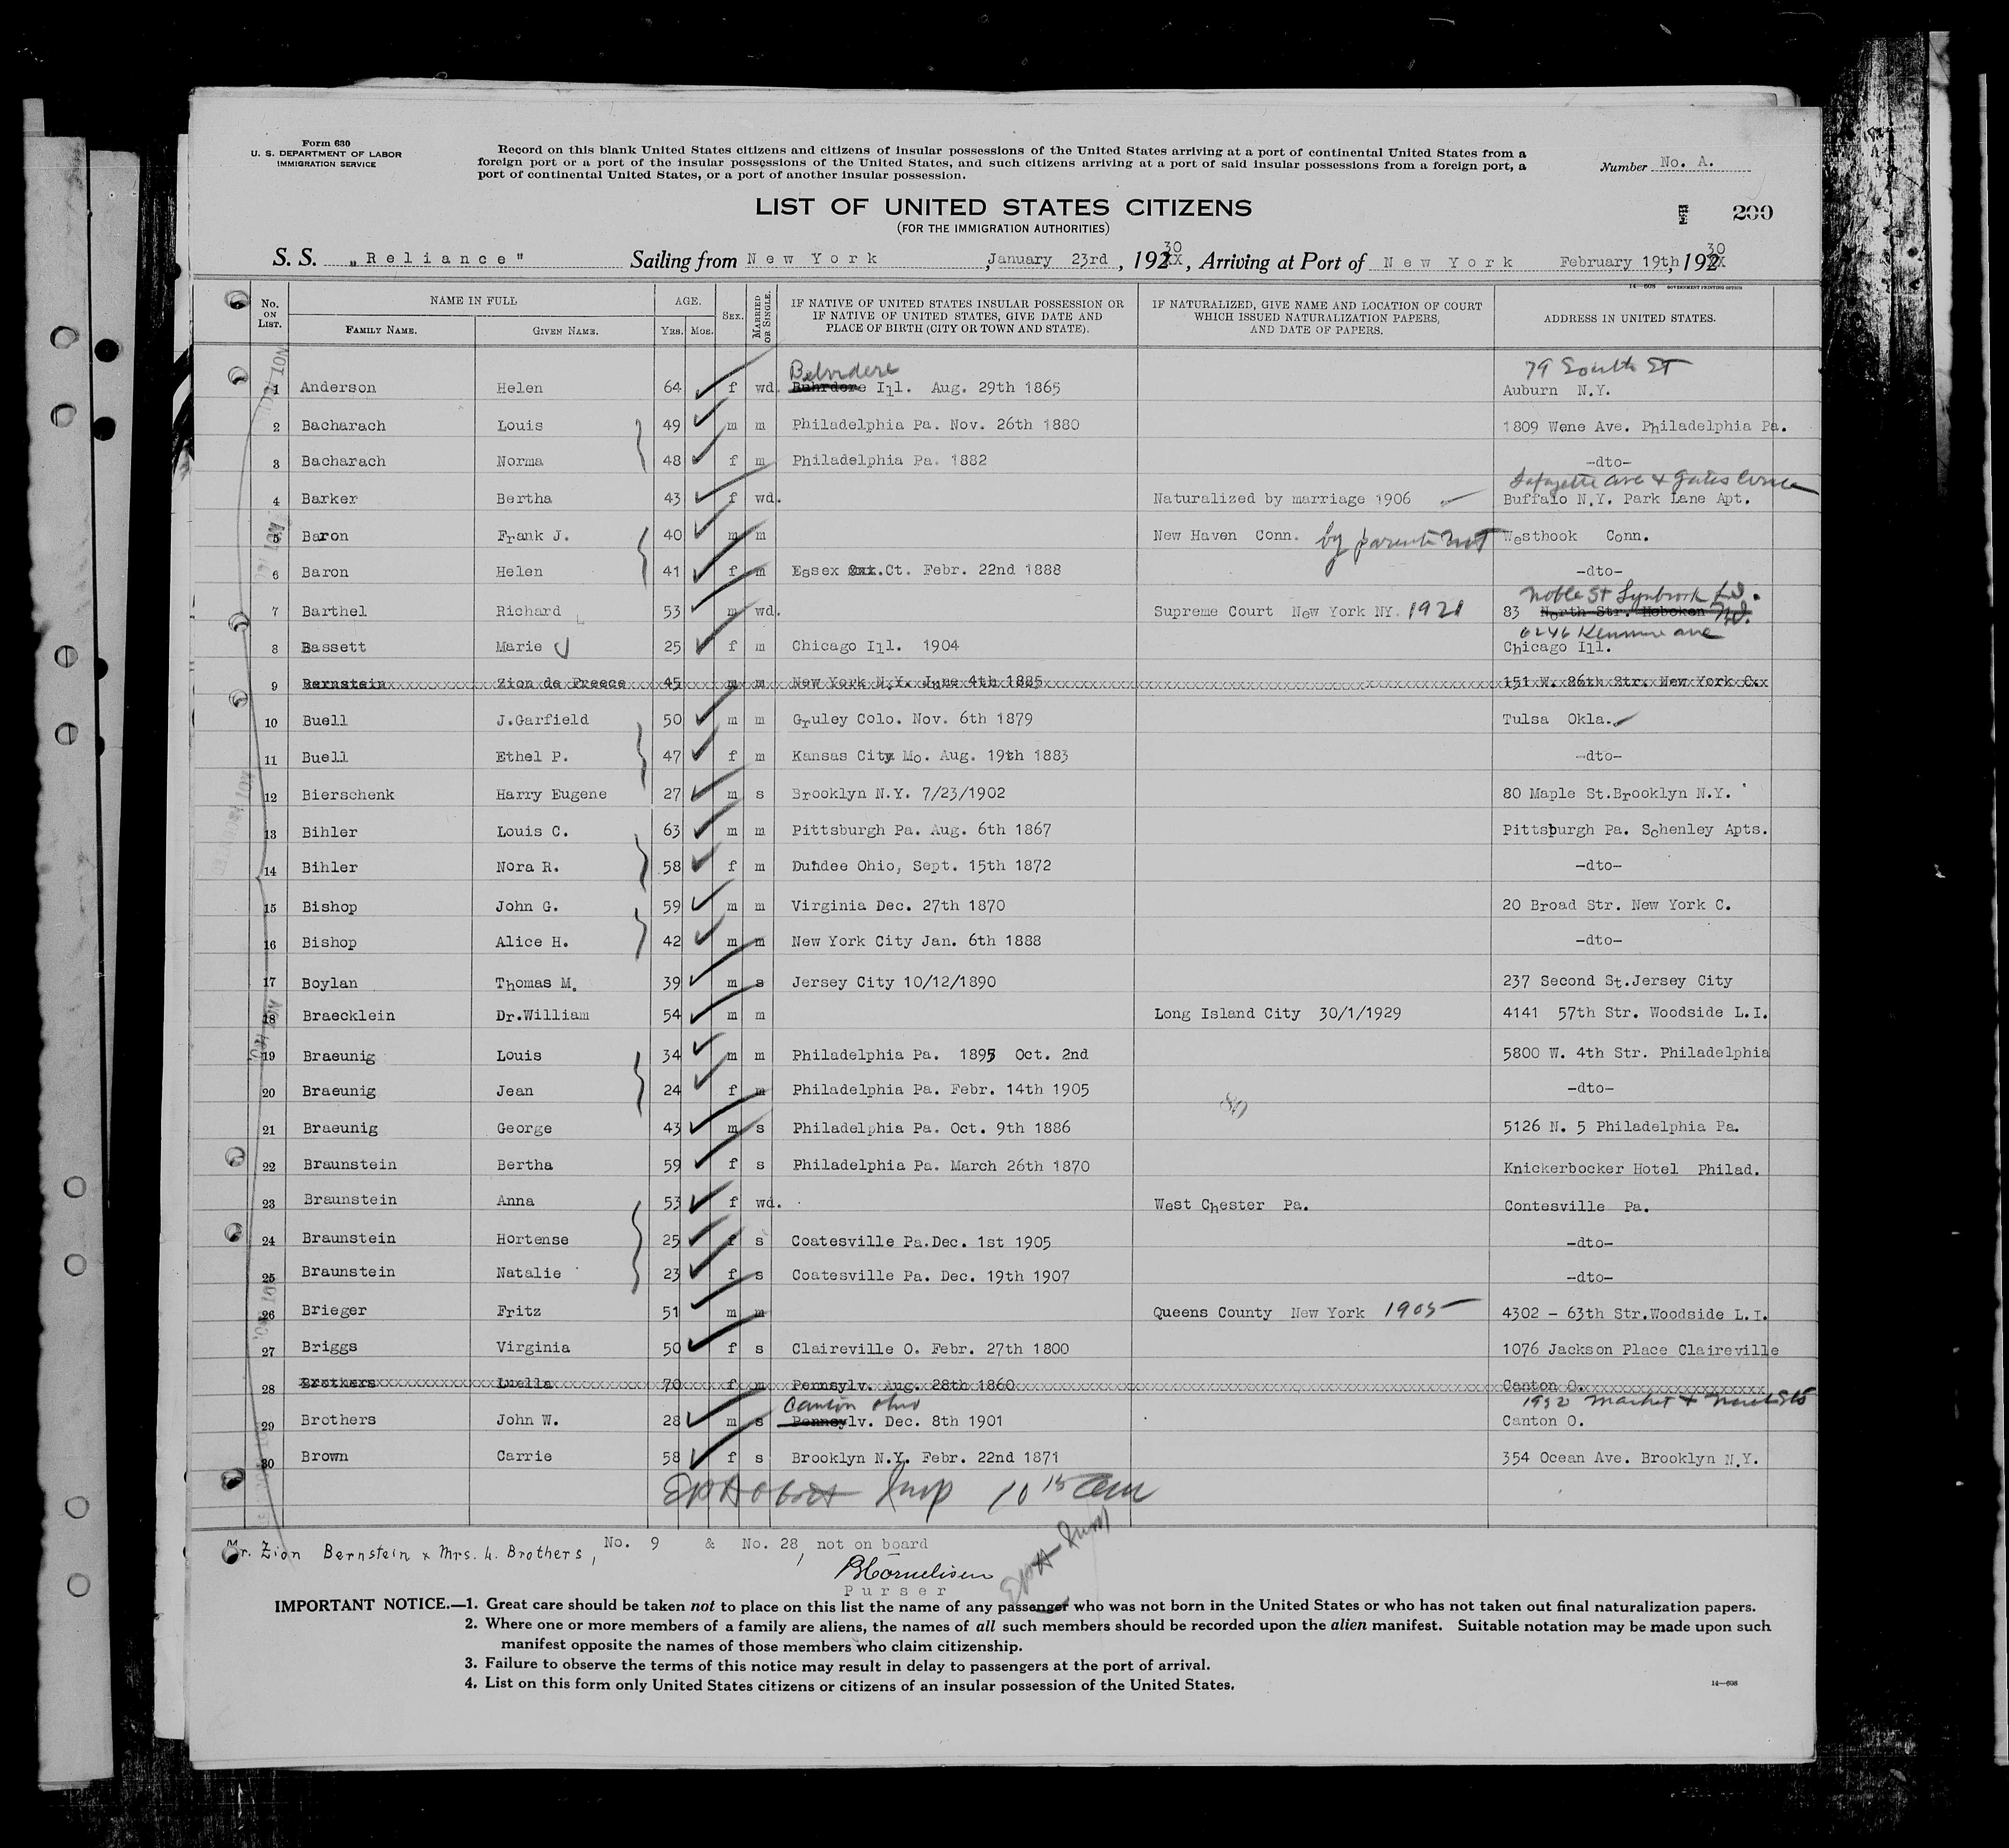 Form 630
U. S. DEPARTMENT OF LABOR
IMMIGRATION SERVICE
Record on this blank United States citizens and citizens of insular possessions of the United States arriving at a port of continental United States from a
foreign port or a port of the insular possessions of the United States, and such citizens arriving at a port of said insular possessions from a foreign port, a
port of continental United States, or a port of another insular possession.
Number No. A.
LIST OF UNITED STATES CITIZENS
(FOR THE IMMIGRATION AUTHORITIES)
200
S. S. „Reliance" Sailing from New York, January 23rd, 192XX 30, Arriving at Port of New York February 19th, 192XX 30
14—608 GOVERNMENT PRINTING OFFICE
No. ON LIST. NAME IN FULL FAMILY NAME. GIVEN NAME. AGE. YRS. MOS. SEX. MARRIED OR SINGLE. IF NATIVE OF UNITED STATES INSULAR POSSESSION OR IF NATIVE OF UNITED STATES, GIVE DATE AND PLACE OF BIRTH (CITY OR TOWN AND STATE). IF NATURALIZED, GIVE NAME AND LOCATION OF COURT WHICH ISSUED NATURALIZATION PAPERS, AND DATE OF PAPERS. ADDRESS IN UNITED STATES.
Belvidere 79 South St
1 Anderson Helen 64 f wd. Ill. Aug. 29th 1865 Auburn N.Y.
2 Bacharach Louis 49 m m Philadelphia Pa. Nov. 26th 1880 1809 Wene Ave. Philadelphia Pa.
3 Bacharach Norma 48 f m Philadelphia Pa. 1882 -dto-
Lafayette Ave & Gates Circle
4 Barker Bertha 43 f wd. Naturalized by marriage 1906 Buffalo N.Y. Park Lane Apt.
5 Baron Frank J. 40 m m New Haven Conn. by parents Westbook Conn.
6 Baron Helen 41 f m Essex Ct. Febr. 22nd 1888 -dto-
Noble St Lynbrook L.I.
7 Barthel Richard 53 m wd. Supreme Court New York NY. 1921 83 North Str. Hoboken
6246 Kenmore ave
8 Bassett Marie J 25 f m Chicago Ill. 1904 Chicago Ill.
9 Bernstein Zion de Freece 45 m m New York N.Y. June 4th 1885 151 W. 86th Str. New York C.
10 Buell J.Garfield 50 m m Gruley Colo. Nov. 6th 1879 Tulsa Okla.
11 Buell Ethel P. 47 f m Kansas City Mo. Aug. 19th 1883 -dto-
12 Bierschenk Harry Eugene 27 m s Brooklyn N.Y. 7/23/1902 80 Maple St.Brooklyn N.Y.
13 Bihler Louis C. 63 m m Pittsburgh Pa. Aug. 6th 1867 Pittsburgh Pa. Schenley Apts.
14 Bihler Nora R. 58 f m Dundee Ohio, Sept. 15th 1872 -dto-
15 Bishop John G. 59 m m Virginia Dec. 27th 1870 20 Broad Str. New York C.
16 Bishop Alice H. 42 m m New York City Jan. 6th 1888 -dto-
17 Boylan Thomas M. 39 m s Jersey City 10/12/1890 237 Second St.Jersey City
18 Braecklein Dr.William 54 m m Long Island City 30/1/1929 4141 57th Str. Woodside L.I.
19 Braeunig Louis 34 m m Philadelphia Pa. 1895 Oct. 2nd 5800 W. 4th Str. Philadelphia
20 Braeunig Jean 24 f m Philadelphia Pa. Febr. 14th 1905 -dto-
21 Braeunig George 43 m s Philadelphia Pa. Oct. 9th 1886 5126 N. 5 Philadelphia Pa.
22 Braunstein Bertha 59 f s Philadelphia Pa. March 26th 1870 Knickerbocker Hotel Philad.
23 Braunstein Anna 53 f wd. West Chester Pa. Contesville Pa.
24 Braunstein Hortense 25 f s Coatesville Pa.Dec. 1st 1905 -dto-
25 Braunstein Natalie 23 f s Coatesville Pa. Dec. 19th 1907 -dto-
26 Brieger Fritz 51 m m Queens County New York 1905 4302 - 63th Str.Woodside L.I.
27 Briggs Virginia 50 f s Claireville O. Febr. 27th 1800 1076 Jackson Place Claireville
28 Brothers Luella 70 f m Pennsylv. Aug. 28th 1860 Canton O.
Canton Ohio Market &
29 Brothers John W. 28 m s Pennsylv. Dec. 8th 1901 Canton O.
30 Brown Carrie 58 f s Brooklyn N.Y. Febr. 22nd 1871 354 Ocean Ave. Brooklyn N.Y.
Insp 10 15 am
Mr. Zion Bernstein & Mrs. L. Brothers, No. 9 & No. 28, not on board
Purser
IMPORTANT NOTICE.—1. Great care should be taken not to place on this list the name of any passenger who was not born in the United States or who has not taken out final naturalization papers.
2. Where one or more members of a family are aliens, the names of all such members should be recorded upon the alien manifest. Suitable notation may be made upon such
manifest opposite the names of those members who claim citizenship.
3. Failure to observe the terms of this notice may result in delay to passengers at the port of arrival.
4. List on this form only United States citizens or citizens of an insular possession of the United States.
14—608